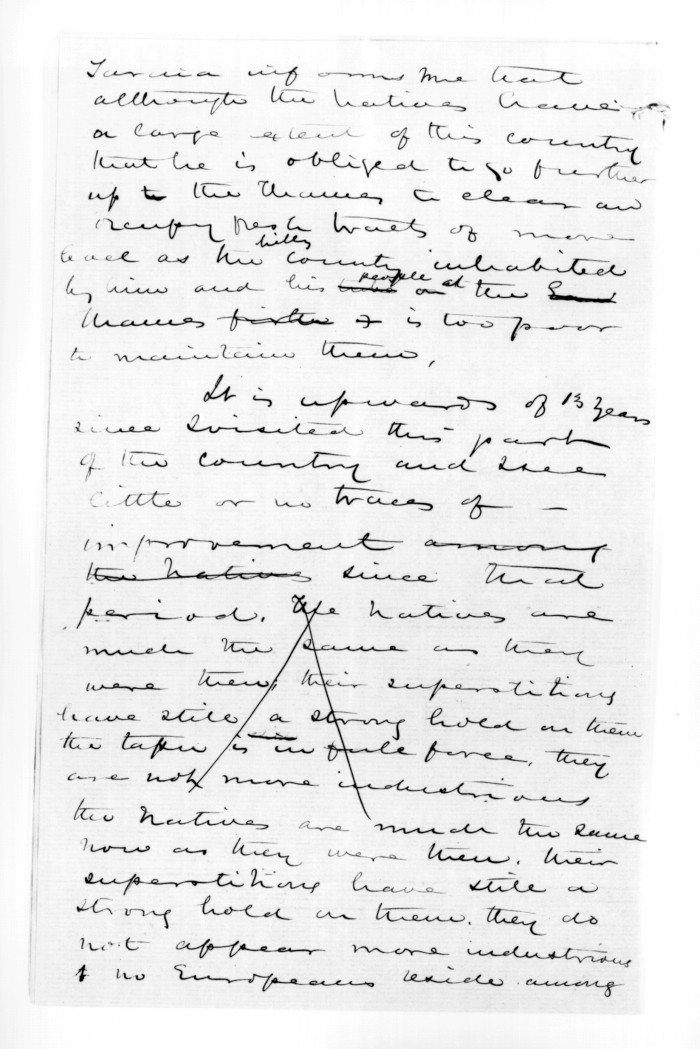 Taraia informs me that
although the natives have
a large extent of this country
that he is obliged to go further
up to the Thames to clear and
occupy fresh tracts of more
level as the country hills inhabited
by him and his tribe people on at the
Thames is too poor
to maintain them,
It is upwards of 13 years
since I visited this part
of the country and I see
little or no traces of –
improvement among
the natives since that
period. The natives are
much the same as they
were then, their superstitions
have still a strong hold on them
the tapu is in full force, they
are not more industrious
the natives are much the same
now as they were then. their
superstitions have still a
strong hold on them. they do
not appear more industrious
& no Europeans reside among